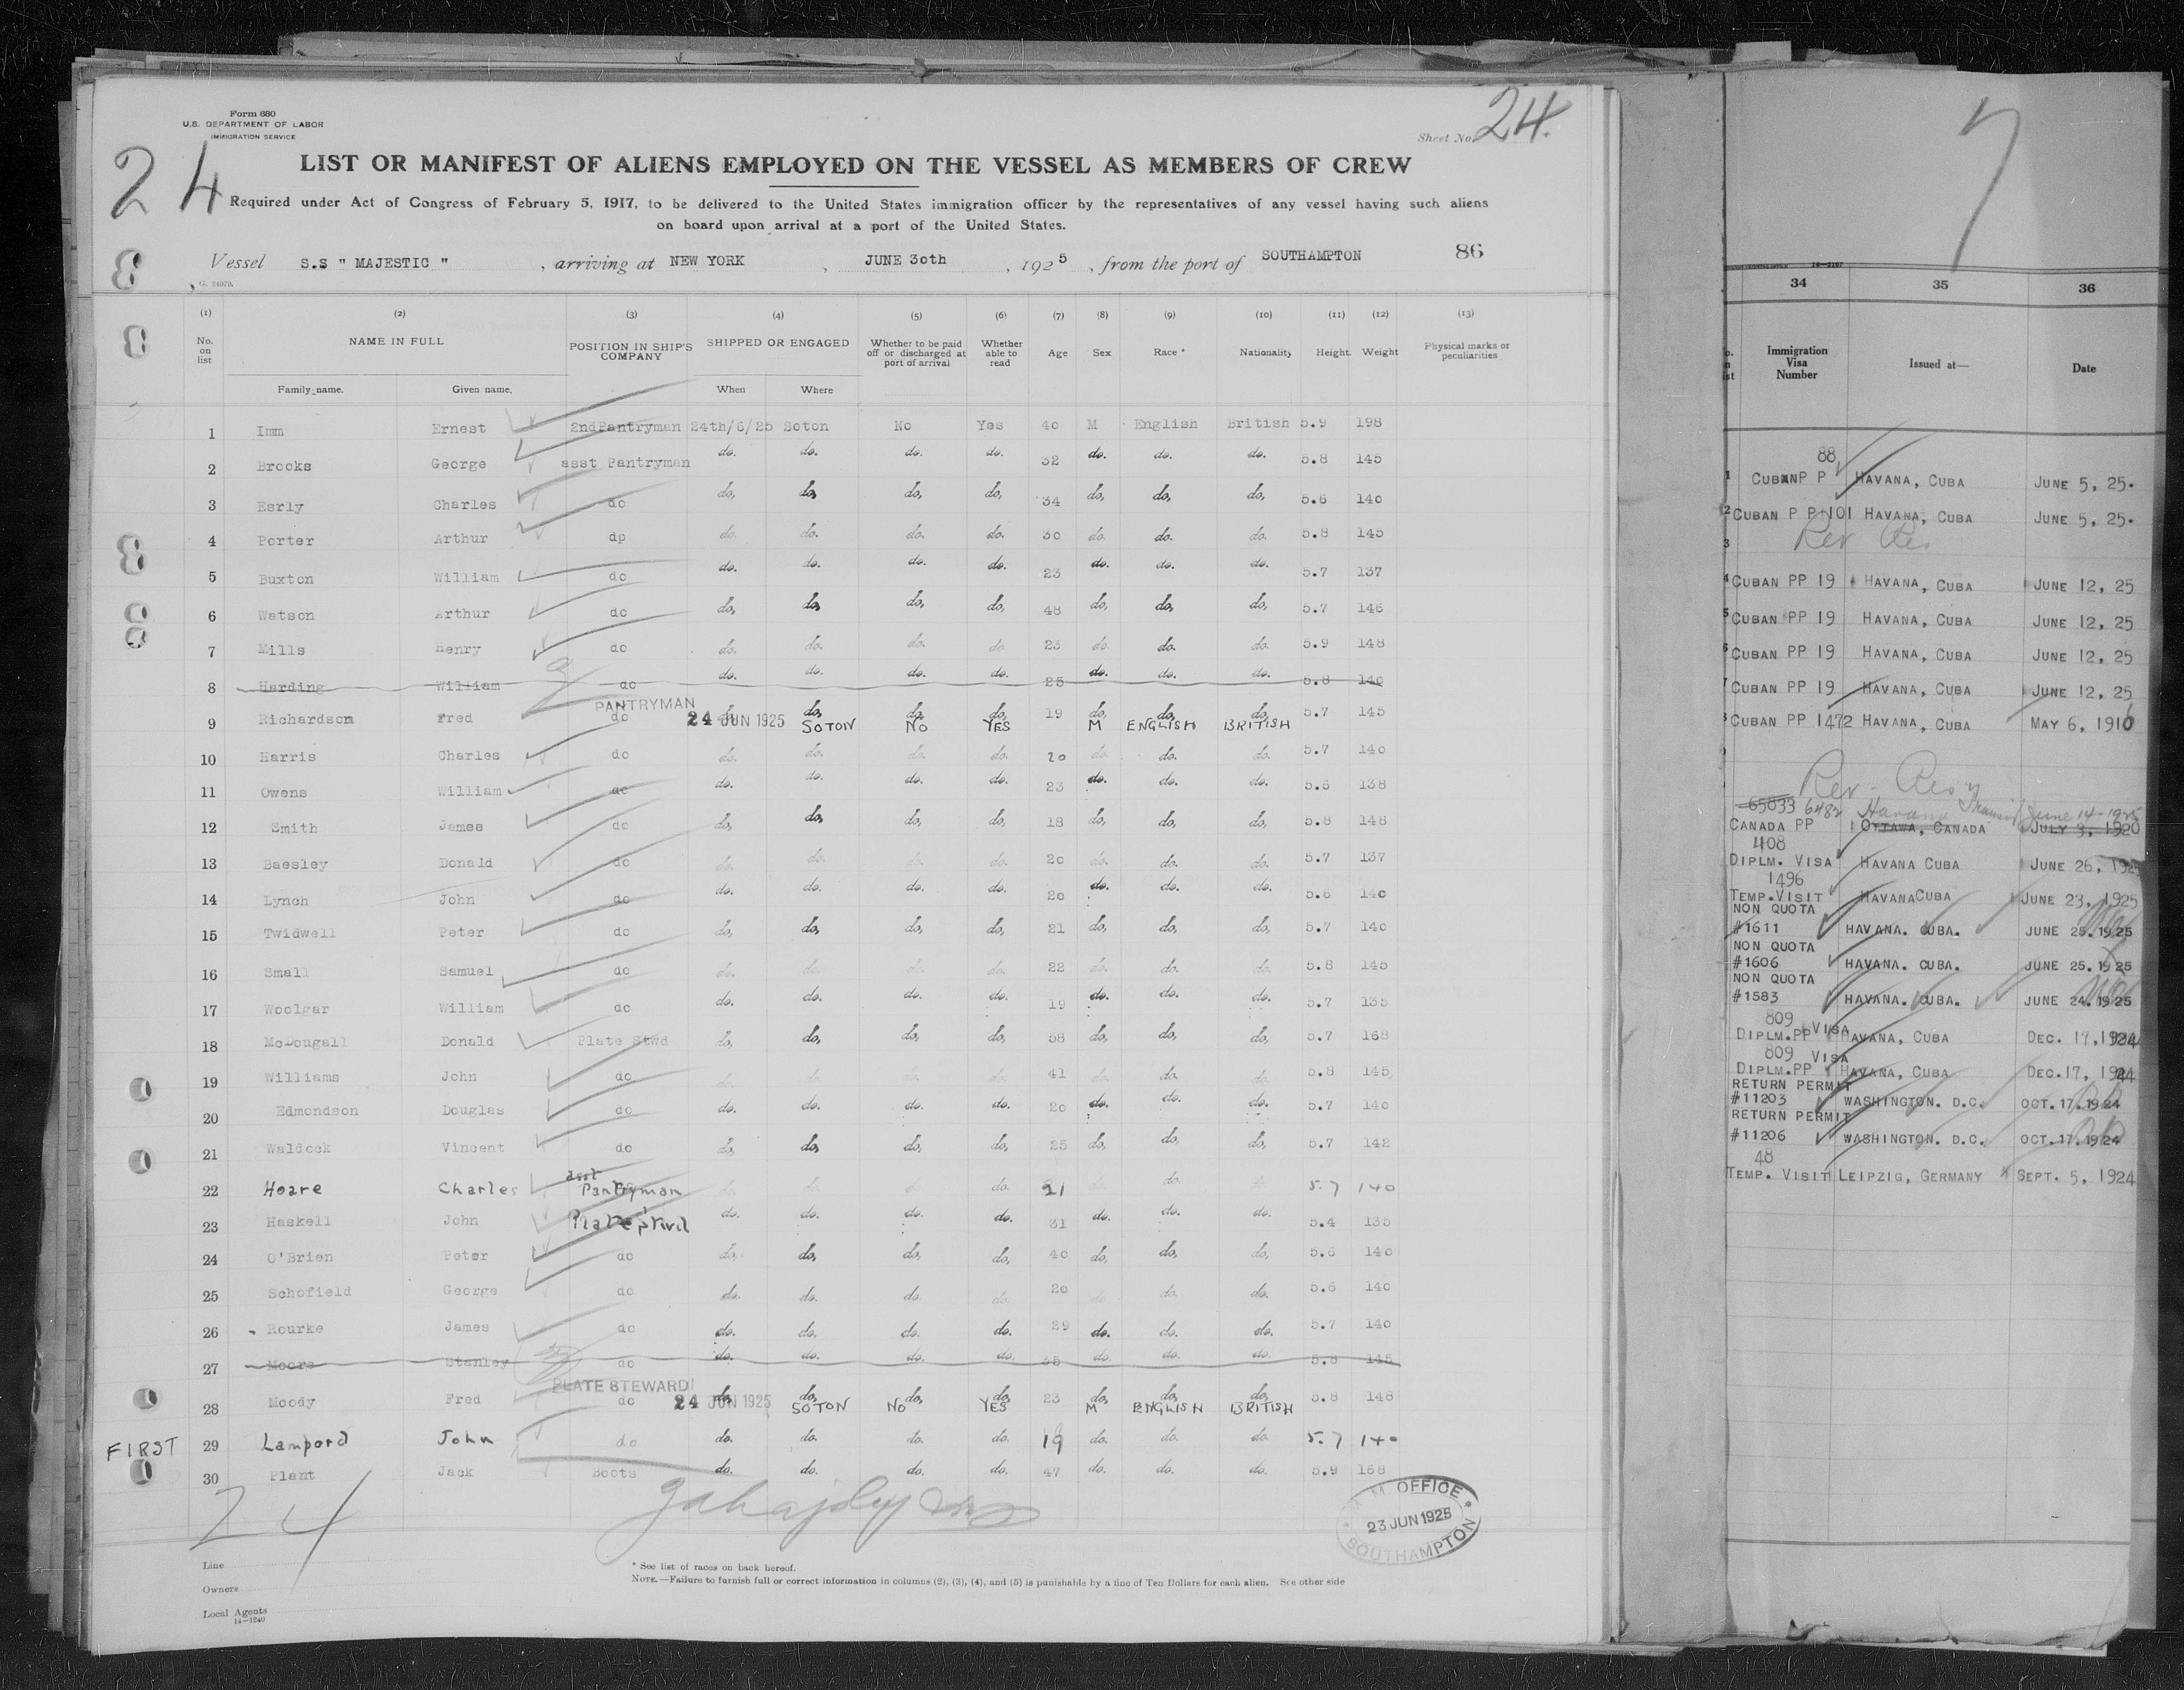 Form 680
U.S. DEPARTMENT OF LABOR
IMMIGRATION SERVICE
Sheet No. 24.
24
LIST OR MANIFEST OF ALIENS EMPLOYED ON THE VESSEL AS MEMBERS OF CREW
Required under Act of Congress of February 5, 1917, to be delivered to the United States immigration officer by the representatives of any vessel having such aliens
on board upon arrival at a port of the United States.
Vessel S.S " MAJESTIC " , arriving at NEW YORK , JUNE 30th , 1925 , from the port of SOUTHAMPTON 86
(1) (2) (3) (4) (5) (6) (7) (8) (9) (10) (11) (12) (13)
No. on list NAME IN FULL POSITION IN SHIP'S COMPANY SHIPPED OR ENGAGED Whether to be paid off or discharged at port of arrival Whether able to read Age Sex Race * Nationality Height. Weight Physical marks or peculiarities
Family name. Given name. When Where
1 Imm Ernest 2ndPantryman 24th/6/25 Soton No Yes 40 M English British 5.9 198
2 Brooks George asst Pantryman do. do. do. do. 32 do. do. do. 5.8 145
3 Esrly Charles do do, do, do, do, 34 do, do, do, 5.6 140
4 Porter Arthur dp do. do. do. do. 30 do. do. do. 5.8 145
5 Buxton William do do. do. do. do. 23 do. do. do. 5.7 137
6 Watson Arthur do do, do, do, do, 48 do, do, do, 5.7 146
7 Mills Henry do do. do. do. do. 23 do. do. do. 5.9 148
8 Harding William do do. do. do. do. 25 do. do. do. 5.8 140
PANTRYMAN
9 Richardson Fred do do, do, do, do, 19 do, do, do, 5.7 145
24 JUN 1925 SOTON NO YES M ENGLISH BRITISH
10 Harris Charles do do. do. do. do. 20 do. do. do. 5.7 140
11 Owens William do do. do. do. do. 23 do. do. do. 5.6 138
12 Smith James do do, do, do, do, 18 do, do, do, 5.8 148
13 Baesley Donald do do. do. do. do. 20 do. do. do. 5.7 137
14 Lynch John do do. do. do. do. 20 do. do. do. 5.6 140
15 Twidwell Peter do do, do, do, do, 21 do, do, do, 5.7 140
16 Small Samuel do do. do. do. do. 22 do. do. do. 5.8 145
17 Woolgar William do do. do. do. do. 19 do. do. do. 5.7 135
18 McDougall Donald Plate Stwd do, do, do, do, 58 do, do, do, 5.7 168
19 Williams John do do. do. do. do. 41 do. do. do. 5.8 145
20 Edmondson Douglas do do. do. do. do. 20 do. do. do. 5.7 140
21 Waldock Vincent do do, do, do, do, 25 do, do, do, 5.7 142
22 Hoare Charles asst Pantryman do. do. do. do. 21 do. do. do. 5.7 140
23 Haskell John do. do. do. do. 31 do. do. do. 5.4 135
24 O'Brien Peter do do, do, do, do, 40 do, do, do, 5.6 140
25 Schofield George do do. do. do. do. 20 do. do. do. 5.6 140
26 Rourke James do do. do. do. do. 29 do. do. do. 5.7 140
27 Moore Stanley do do. do. do. do. 35 do. do. do. 5.8 145
PLATE STEWARD
28 Moody Fred do do, do, do, do, 23 do, do, do, 5.8 148
24 JUN 1925 SOTON NO YES M ENGLISH BRITISH
FIRST 29 Lampord John do do. do. do. do. 19 do. do. do. 5.7 140
30 Plant Jack Boots do. do. do. do. 47 do. do. do. 5.9 168
24
OFFICE
23 JUN 1925
SOUTHAMPTON
Line
Owners
Local Agents
14—1240
* See list of races on back hereof.
NOTE.—Failure to furnish full or correct information in columns (2), (3), (4), and (5) is punishable by a fine of Ten Dollars for each alien. See other side
7
34 35 36
Immigration Visa Number Issued at— Date
88
CUBAN P P HAVANA, CUBA JUNE 5, 25.
CUBAN P P 1101 HAVANA, CUBA JUNE 5, 25.
Rev Res
CUBAN PP 19 HAVANA, CUBA JUNE 12, 25
CUBAN PP 19 HAVANA, CUBA JUNE 12, 25
CUBAN PP 19 HAVANA, CUBA JUNE 12, 25
CUBAN PP 19 HAVANA, CUBA JUNE 12, 25
CUBAN PP 1472 HAVANA, CUBA MAY 6, 1916
65833 6482 Havana Transit June 14-1925
CANADA PP OTTAWA, CANADA JULY 3, 1920
408
DIPLM. VISA HAVANA CUBA JUNE 26, 192
1496
TEMP. VISIT HAVANA CUBA JUNE 23, 1925
NON QUOTA
#1611 HAVANA. CUBA. JUNE 25. 1925
NON QUOTA
#1606 HAVANA. CUBA. JUNE 25. 1925
NON QUOTA
#1583 HAVANA. CUBA. JUNE 24. 1925
809
DIPLM.PP VISA HAVANA, CUBA DEC. 17, 1924
809 VISA
DIPLM.PP HAVANA, CUBA DEC.17, 1924
RETURN PERMIT
#11203 WASHINGTON. D.C. OCT. 17. 1924
RETURN PERMIT
#11206 WASHINGTON. D.C. OCT. 17. 1924
48
TEMP. VISIT LEIPZIG, GERMANY SEPT. 5, 1924